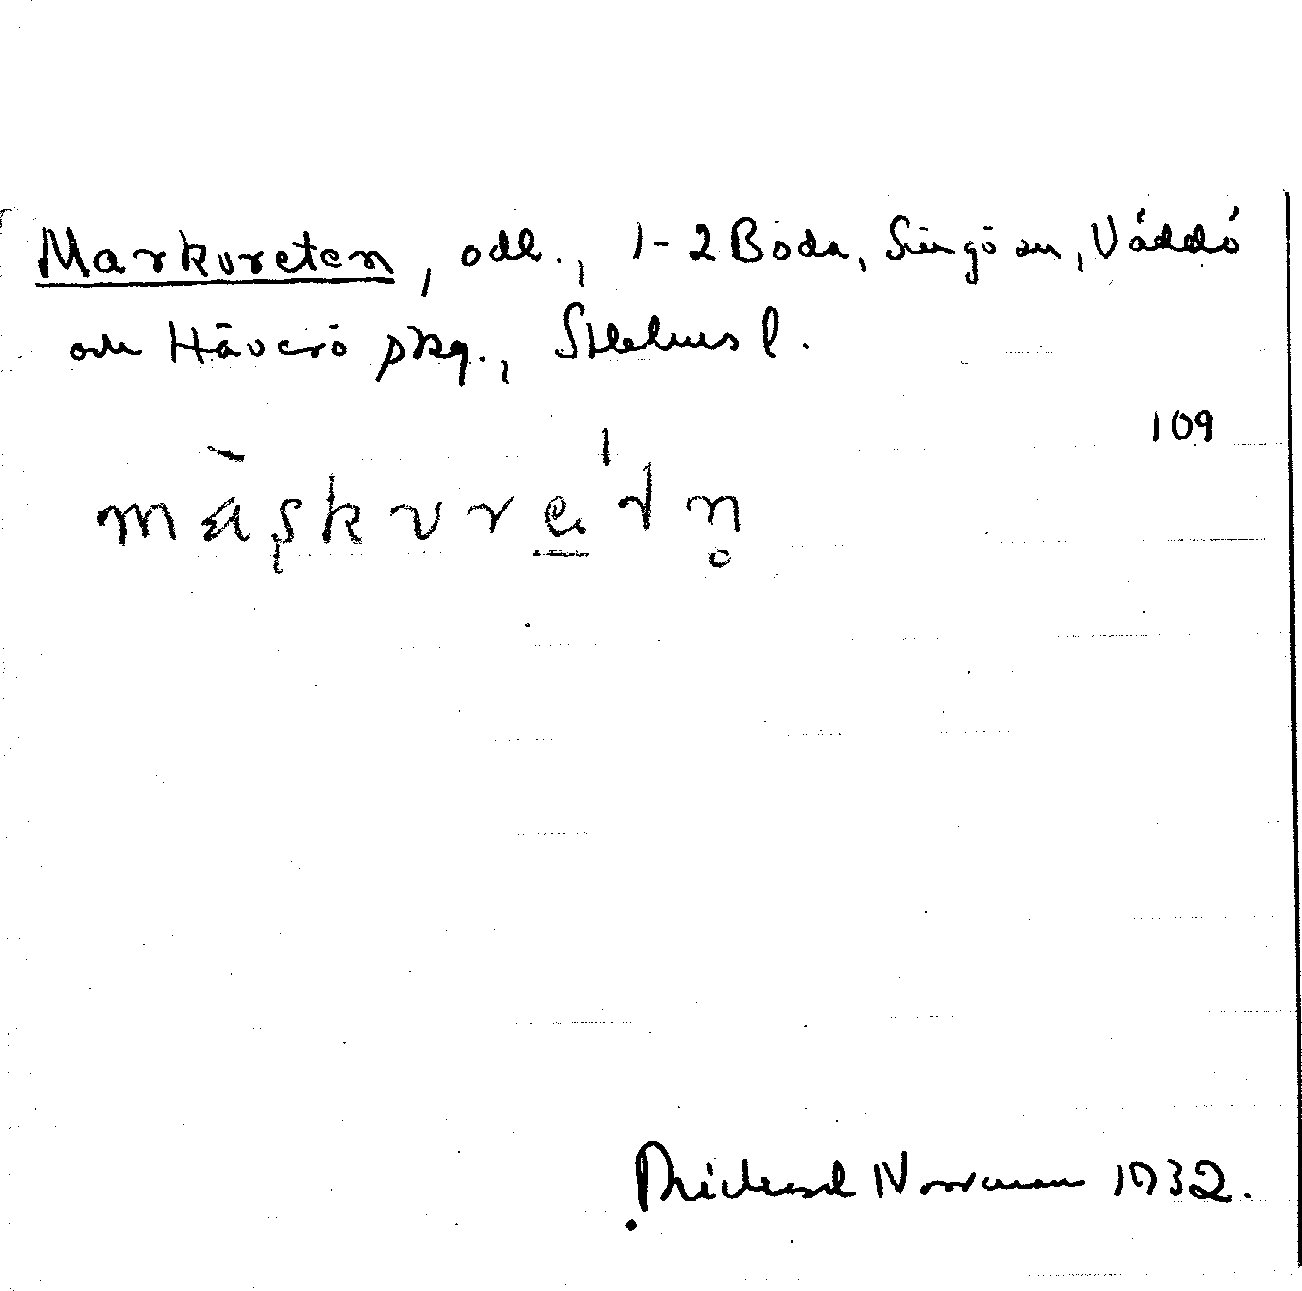 Markvreten, odl., 1-2 Boda, Singö sn, Väddö
och Häverö skg., Sthlms l.
109
Rickard Norrman 1932.